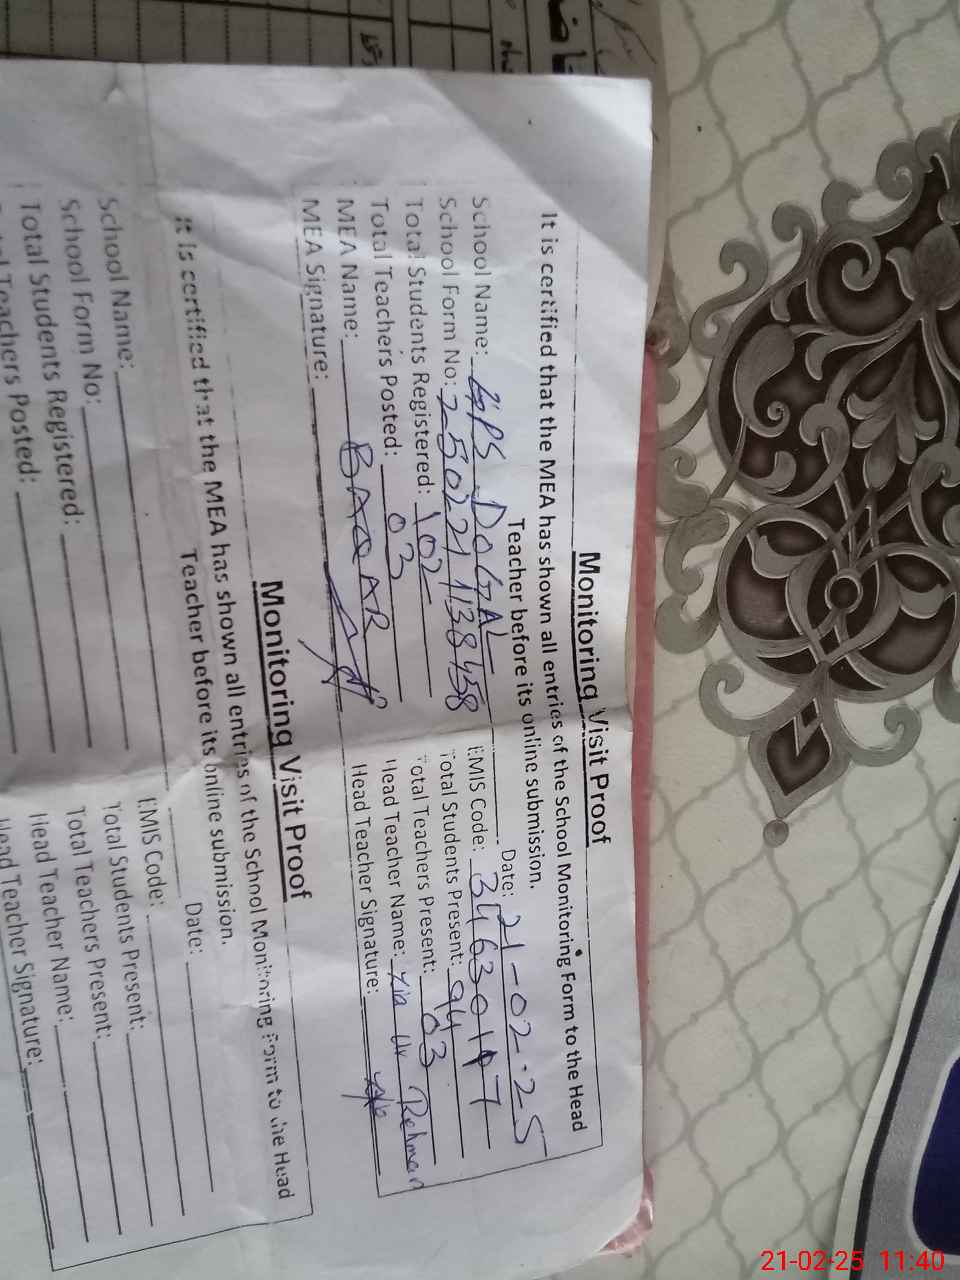 Monitoring Visit Proof
It is certified that the MEA has shown all entries of the School Monitoring Form to the Head
Teacher before its online submission.
Date: 21-02-25
School Name: GPS DOGAL EMIS Code:
School Form No: Total Students Present: 94
Total Students Registered: 102 Total Teachers Present: 03
Total Teachers Posted: 03 Head Teacher Name: Zia Ur Rehman
MEA Name: BAQAR Head Teacher Signature:
MEA Signature:
Monitoring Visit Proof
It is certified that the MEA has shown all entries of the School Monitoring Form to the Head
Teacher before its online submission.
Date:
School Name: EMIS Code:
School Form No: Total Students Present:
Total Students Registered: Total Teachers Present:
Total Teachers Posted: Head Teacher Name:
Head Teacher Signature:
21-02-25 11:40